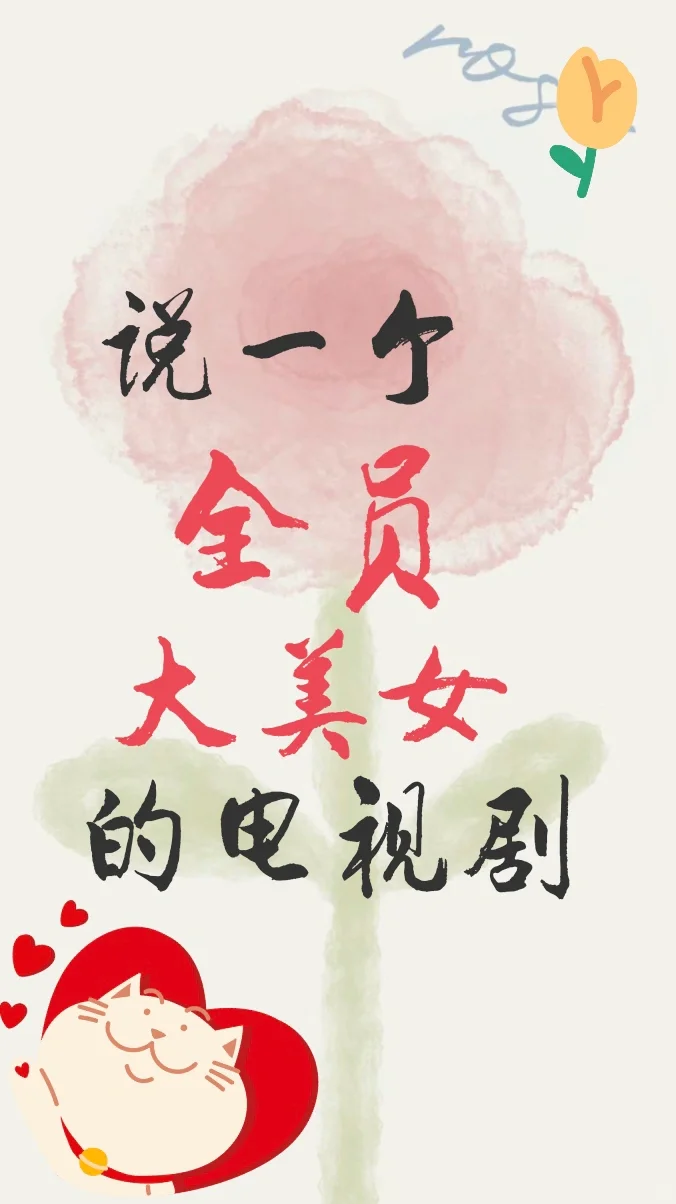 说一个
全员
大美女
的电视剧